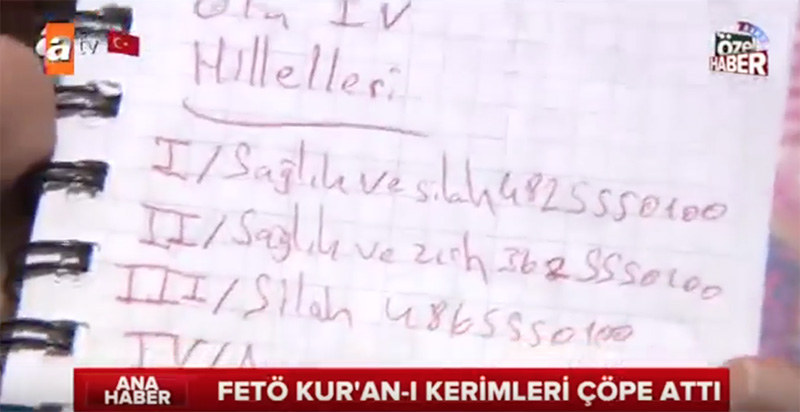 a tv
ÖZEL
HABER
IV
Hillelleri
I/Sağlık ve silah 4825550100
II/Sağlık ve zırh 3625550100
III/Silah 4865550100
IV/
ANA
HABER
FETÖ KUR'AN-I KERİMLERİ ÇÖPE ATTI